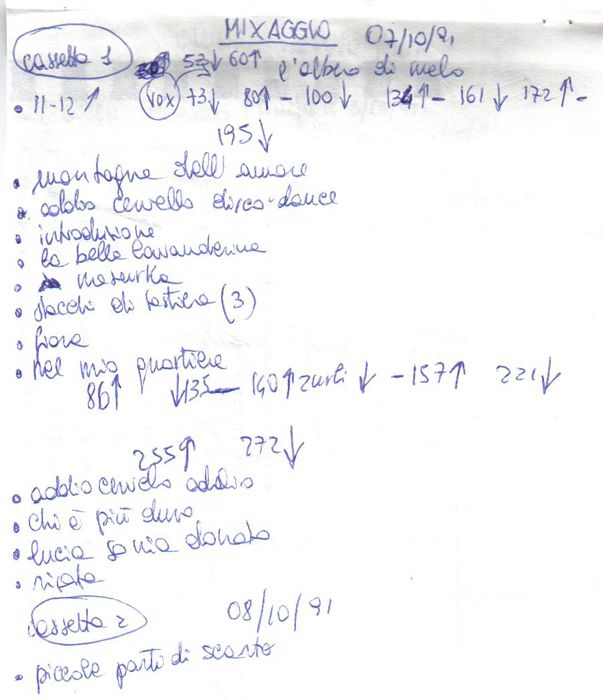 MIXAGGIO 07/10/91
cassetta 1
53↓ 60↑ l'albero di melo
• 11-12 ↑ (VOX) 73↓ 80↑ - 100↓ 134↑ - 161↓ 172↑ -
195↓
• montagne dell'amore
• addio cervello disco-dance
• introduzione
• la bella lavanderina
• masurka
• stacchi di tastiera (3)
• fiore
• nel mio quartiere
86↑ ↓135 - 140↑ zurli ↓ - 157↑ 221↓
255↑ 272↓
• addio cervello addio
• chi è più duro
• lucia sonia donato
• risata
cassetta 2 08/10/91
• piccole parti di scarto